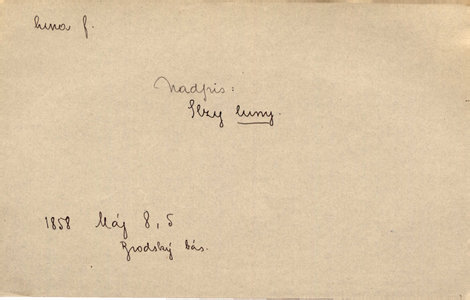 luna f.
Nadpis:
Slzy luny
1858 Máj 8, 5
Brodský bás.